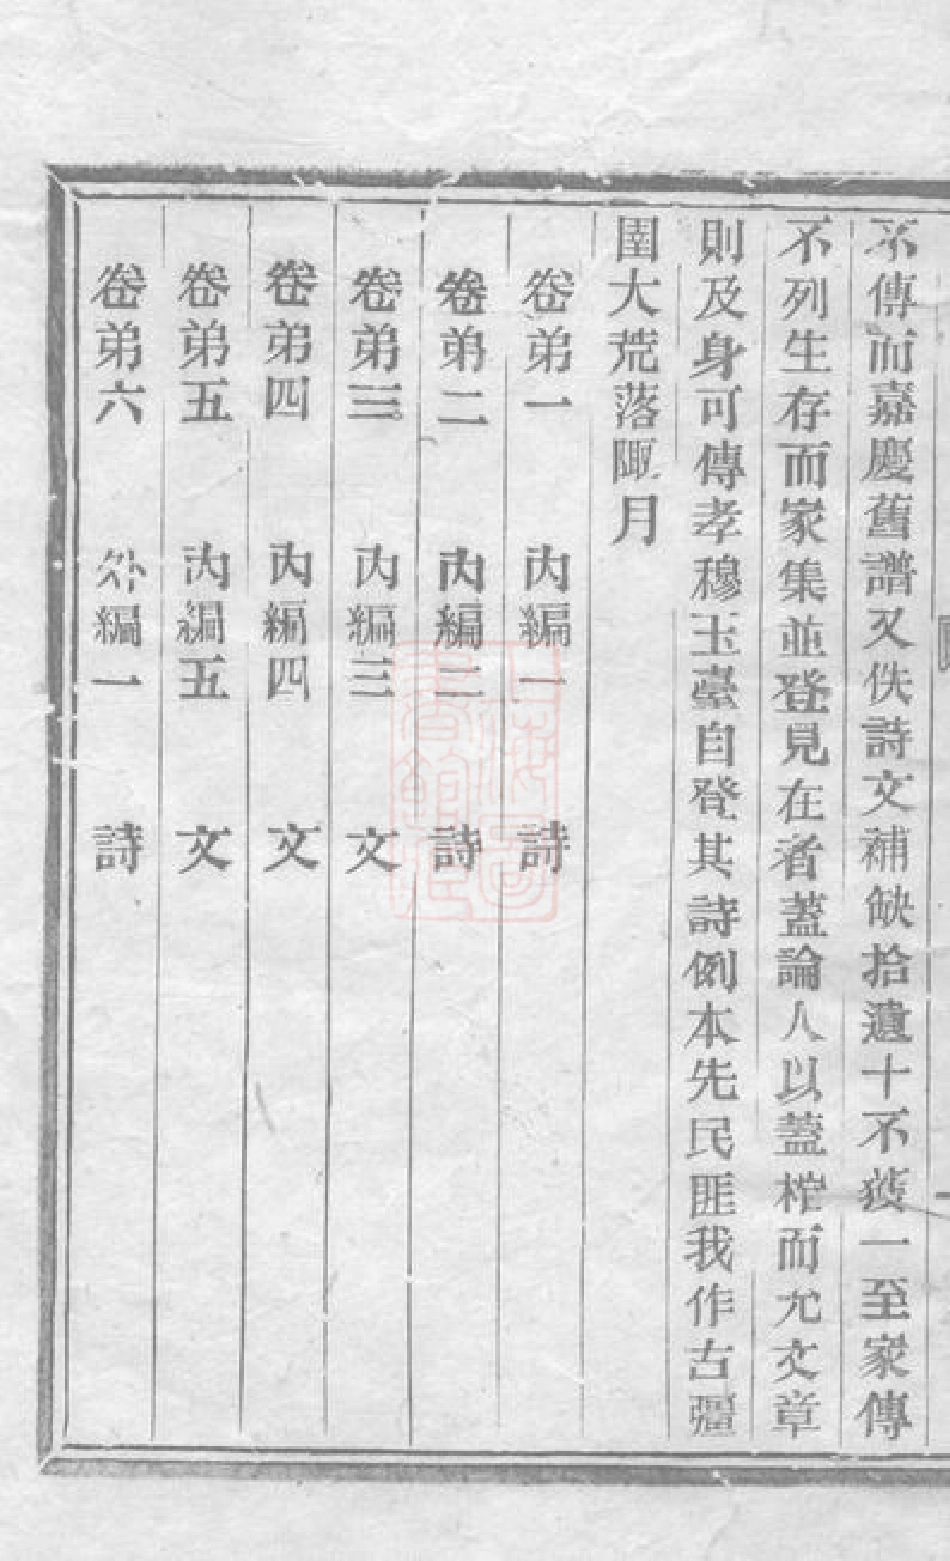 不傳而嘉慶舊譜又佚詩文補缺拾遺十不獲一至家傳
不列生存而家集並登見在者蓋論人以蓋棺而允文章
則及身可傳孝穆玉臺自登其詩例本先民匪我作古彊
圉大荒落陬月
卷弟一 內編一 詩
卷弟二 內編二 詩
卷弟三 內編三 文
卷弟四 內編四 文
卷弟五 內編五 文
卷弟六 外編一 詩